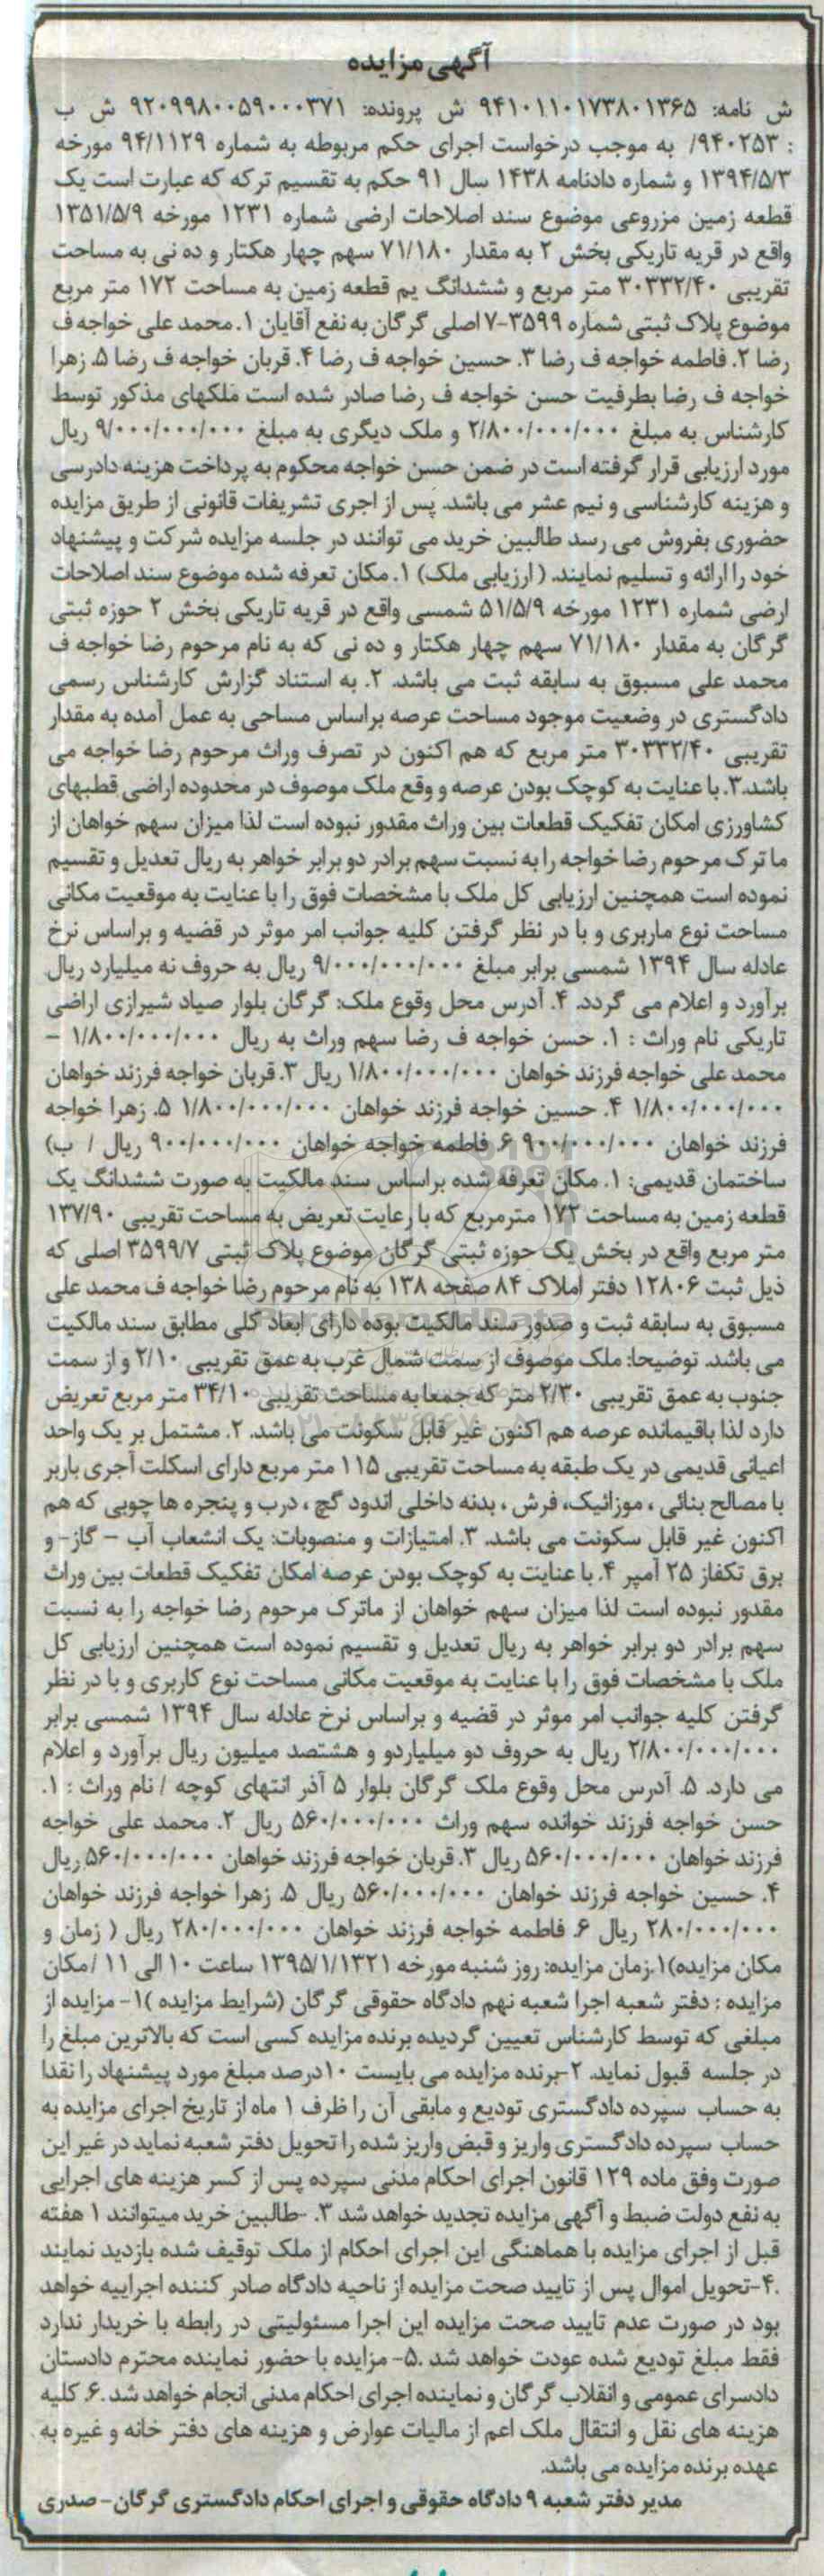 آگهی مزایده
ش نامه: ۹۴۱۰۱۱۰۱۷۳۸۰۱۳۶۵ ش پرونده: ۹۲۰۹۹۸۰۰۵۹۰۰۰۳۷۱ ش ب
: ۹۴۰۲۵۳/ به موجب درخواست اجرای حکم مربوطه به شماره ۹۴/۱۱۲۹ مورخه
۱۳۹۴/۵/۳ و شماره دادنامه ۱۴۳۸ سال ۹۱ حکم به تقسیم ترکه که عبارت است یک
قطعه زمین مزروعی موضوع سند اصلاحات ارضی شماره ۱۲۳۱ مورخه ۱۳۵۱/۵/۹
واقع در قریه تاریکی بخش ۲ به مقدار ۷۱/۱۸۰ سهم چهار هکتار و ده نی به مساحت
تقریبی ۳۰۳۳۲/۴۰ متر مربع و ششدانگ یم قطعه زمین به مساحت ۱۷۲ متر مربع
موضوع پلاک ثبتی شماره ۳۵۹۹-۷ اصلی گرگان به نفع آقایان ۱. محمد علی خواجه ف
رضا ۲. فاطمه خواجه ف رضا ۳. حسین خواجه ف رضا ۴. قربان خواجه ف رضا ۵. زهرا
خواجه ف رضا بطرفیت حسن خواجه ف رضا صادر شده است ملکهای مذکور توسط
کارشناس به مبلغ ۲/۸۰۰/۰۰۰/۰۰۰ و ملک دیگری به مبلغ ۹/۰۰۰/۰۰۰/۰۰۰ ریال
مورد ارزیابی قرار گرفته است در ضمن حسن خواجه محکوم به پرداخت هزینه دادرسی
و هزینه کارشناسی و نیم عشر می باشد. پس از اجری تشریفات قانونی از طریق مزایده
حضوری بفروش می رسد طالبین خرید می توانند در جلسه مزایده شرکت و پیشنهاد
خود را ارائه و تسلیم نمایند. ( ارزیابی ملک) ۱. مکان تعرفه شده موضوع سند اصلاحات
ارضی شماره ۱۲۳۱ مورخه ۵۱/۵/۹ شمسی واقع در قریه تاریکی بخش ۲ حوزه ثبتی
گرگان به مقدار ۷۱/۱۸۰ سهم چهار هکتار و ده نی که به نام مرحوم رضا خواجه ف
محمد علی مسبوق به سابقه ثبت می باشد. ۲. به استناد گزارش کارشناس رسمی
دادگستری در وضعیت موجود مساحت عرصه براساس مساحی به عمل آمده به مقدار
تقریبی ۳۰۳۳۲/۴۰ متر مربع که هم اکنون در تصرف وراث مرحوم رضا خواجه می
باشد.۳. با عنایت به کوچک بودن عرصه و وقع ملک موصوف در محدوده اراضی قطبهای
کشاورزی امکان تفکیک قطعات بین وراث مقدور نبوده است لذا میزان سهم خواهان از
ما ترک مرحوم رضا خواجه را به نسبت سهم برادر دو برابر خواهر به ریال تعدیل و تقسیم
نموده است همچنین ارزیابی کل ملک با مشخصات فوق را با عنایت به موقعیت مکانی
مساحت نوع ماربری و با در نظر گرفتن کلیه جوانب امر موثر در قضیه و براساس نرخ
عادله سال ۱۳۹۴ شمسی برابر مبلغ ۹/۰۰۰/۰۰۰/۰۰۰ ریال به حروف نه میلیارد ریال
برآورد و اعلام می گردد. ۴. آدرس محل وقوع ملک: گرگان بلوار صیاد شیرازی اراضی
تاریکی نام وراث : ۱. حسن خواجه ف رضا سهم وراث به ریال ۱/۸۰۰/۰۰۰/۰۰۰ –
محمد علی خواجه فرزند خواهان ۱/۸۰۰/۰۰۰/۰۰۰ ریال ۳. قربان خواجه فرزند خواهان
۱/۸۰۰/۰۰۰/۰۰۰ ۴. حسین خواجه فرزند خواهان ۱/۸۰۰/۰۰۰/۰۰۰ ۵. زهرا خواجه
فرزند خواهان ۹۰۰/۰۰۰/۰۰۰ ۶. فاطمه خواجه خواهان ۹۰۰/۰۰۰/۰۰۰ ریال / ب)
ساختمان قدیمی: ۱. مکان تعرفه شده براساس سند مالکیت به صورت ششدانگ یک
قطعه زمین به مساحت ۱۷۲ مترمربع که با رعایت تعریض به مساحت تقریبی ۱۳۷/۹۰
متر مربع واقع در بخش یک حوزه ثبتی گرگان موضوع پلاک ثبتی ۳۵۹۹/۷ اصلی که
ذیل ثبت ۱۲۸۰۶ دفتر املاک ۸۴ صفحه ۱۳۸ به نام مرحوم رضا خواجه ف محمد علی
مسبوق به سابقه ثبت و صدور سند مالکیت بوده دارای ابعاد کلی مطابق سند مالکیت
می باشد. توضیحا: ملک موصوف از سمت شمال غرب به عمق تقریبی ۲/۱۰ و از سمت
جنوب به عمق تقریبی ۲/۳۰ متر که جمعا به مساحت تقریبی ۳۴/۱۰ متر مربع تعریض
دارد لذا باقیمانده عرصه هم اکنون غیر قابل سکونت می باشد. ۲. مشتمل بر یک واحد
اعیانی قدیمی در یک طبقه به مساحت تقریبی ۱۱۵ متر مربع دارای اسکلت آجری باربر
با مصالح بنائی ، موزائیک، فرش ، بدنه داخلی اندود گچ ، درب و پنجره ها چوبی که هم
اکنون غیر قابل سکونت می باشد. ۳. امتیازات و منصوبات: یک انشعاب آب – گاز- و
برق تکفاز ۲۵ آمپر ۴. با عنایت به کوچک بودن عرصه امکان تفکیک قطعات بین وراث
مقدور نبوده است لذا میزان سهم خواهان از ماترک مرحوم رضا خواجه را به نسبت
سهم برادر دو برابر خواهر به ریال تعدیل و تقسیم نموده است همچنین ارزیابی کل
ملک با مشخصات فوق را با عنایت به موقعیت مکانی مساحت نوع کاربری و با در نظر
گرفتن کلیه جوانب امر موثر در قضیه و براساس نرخ عادله سال ۱۳۹۴ شمسی برابر
۲/۸۰۰/۰۰۰/۰۰۰ ریال به حروف دو میلیاردو و هشتصد میلیون ریال برآورد و اعلام
می دارد. ۵. آدرس محل وقوع ملک گرگان بلوار ۵ آذر انتهای کوچه / نام وراث : ۱.
حسن خواجه فرزند خوانده سهم وراث ۵۶۰/۰۰۰/۰۰۰ ریال ۲. محمد علی خواجه
فرزند خواهان ۵۶۰/۰۰۰/۰۰۰ ریال ۳. قربان خواجه فرزند خواهان ۵۶۰/۰۰۰/۰۰۰ ریال
۴. حسین خواجه فرزند خواهان ۵۶۰/۰۰۰/۰۰۰ ریال ۵. زهرا خواجه فرزند خواهان
۲۸۰/۰۰۰/۰۰۰ ریال ۶. فاطمه خواجه فرزند خواهان ۲۸۰/۰۰۰/۰۰۰ ریال ( زمان و
مکان مزایده)۱.زمان مزایده: روز شنبه مورخه ۱۳۹۵/۱/۱۳۲۱ ساعت ۱۰ الی ۱۱ /مکان
مزایده : دفتر شعبه اجرا شعبه نهم دادگاه حقوقی گرگان (شرایط مزایده )۱- مزایده از
مبلغی که توسط کارشناس تعیین گردیده برنده مزایده کسی است که بالاترین مبلغ را
در جلسه قبول نماید. ۲-برنده مزایده می بایست ۱۰درصد مبلغ مورد پیشنهاد را نقدا
به حساب سپرده دادگستری تودیع و مابقی آن را ظرف ۱ ماه از تاریخ اجرای مزایده به
حساب سپرده دادگستری واریز و قبض واریز شده را تحویل دفتر شعبه نماید در غیر این
صورت وفق ماده ۱۲۹ قانون اجرای احکام مدنی سپرده پس از کسر هزینه های اجرایی
به نفع دولت ضبط و آگهی مزایده تجدید خواهد شد ۳. -طالبین خرید میتوانند ۱ هفته
قبل از اجرای مزایده با هماهنگی این اجرای احکام از ملک توقیف شده بازدید نمایند
.۴-تحویل اموال پس از تایید صحت مزایده از ناحیه دادگاه صادر کننده اجراییه خواهد
بود در صورت عدم تایید صحت مزایده این اجرا مسئولیتی در رابطه با خریدار ندارد
فقط مبلغ تودیع شده عودت خواهد شد .۵- مزایده با حضور نماینده محترم دادستان
دادسرای عمومی و انقلاب گرگان و نماینده اجرای احکام مدنی انجام خواهد شد .۶. کلیه
هزینه های نقل و انتقال ملک اعم از مالیات عوارض و هزینه های دفتر خانه و غیره به
عهده برنده مزایده می باشد.
مدیر دفتر شعبه ۹ دادگاه حقوقی و اجرای احکام دادگستری گرگان- صدری